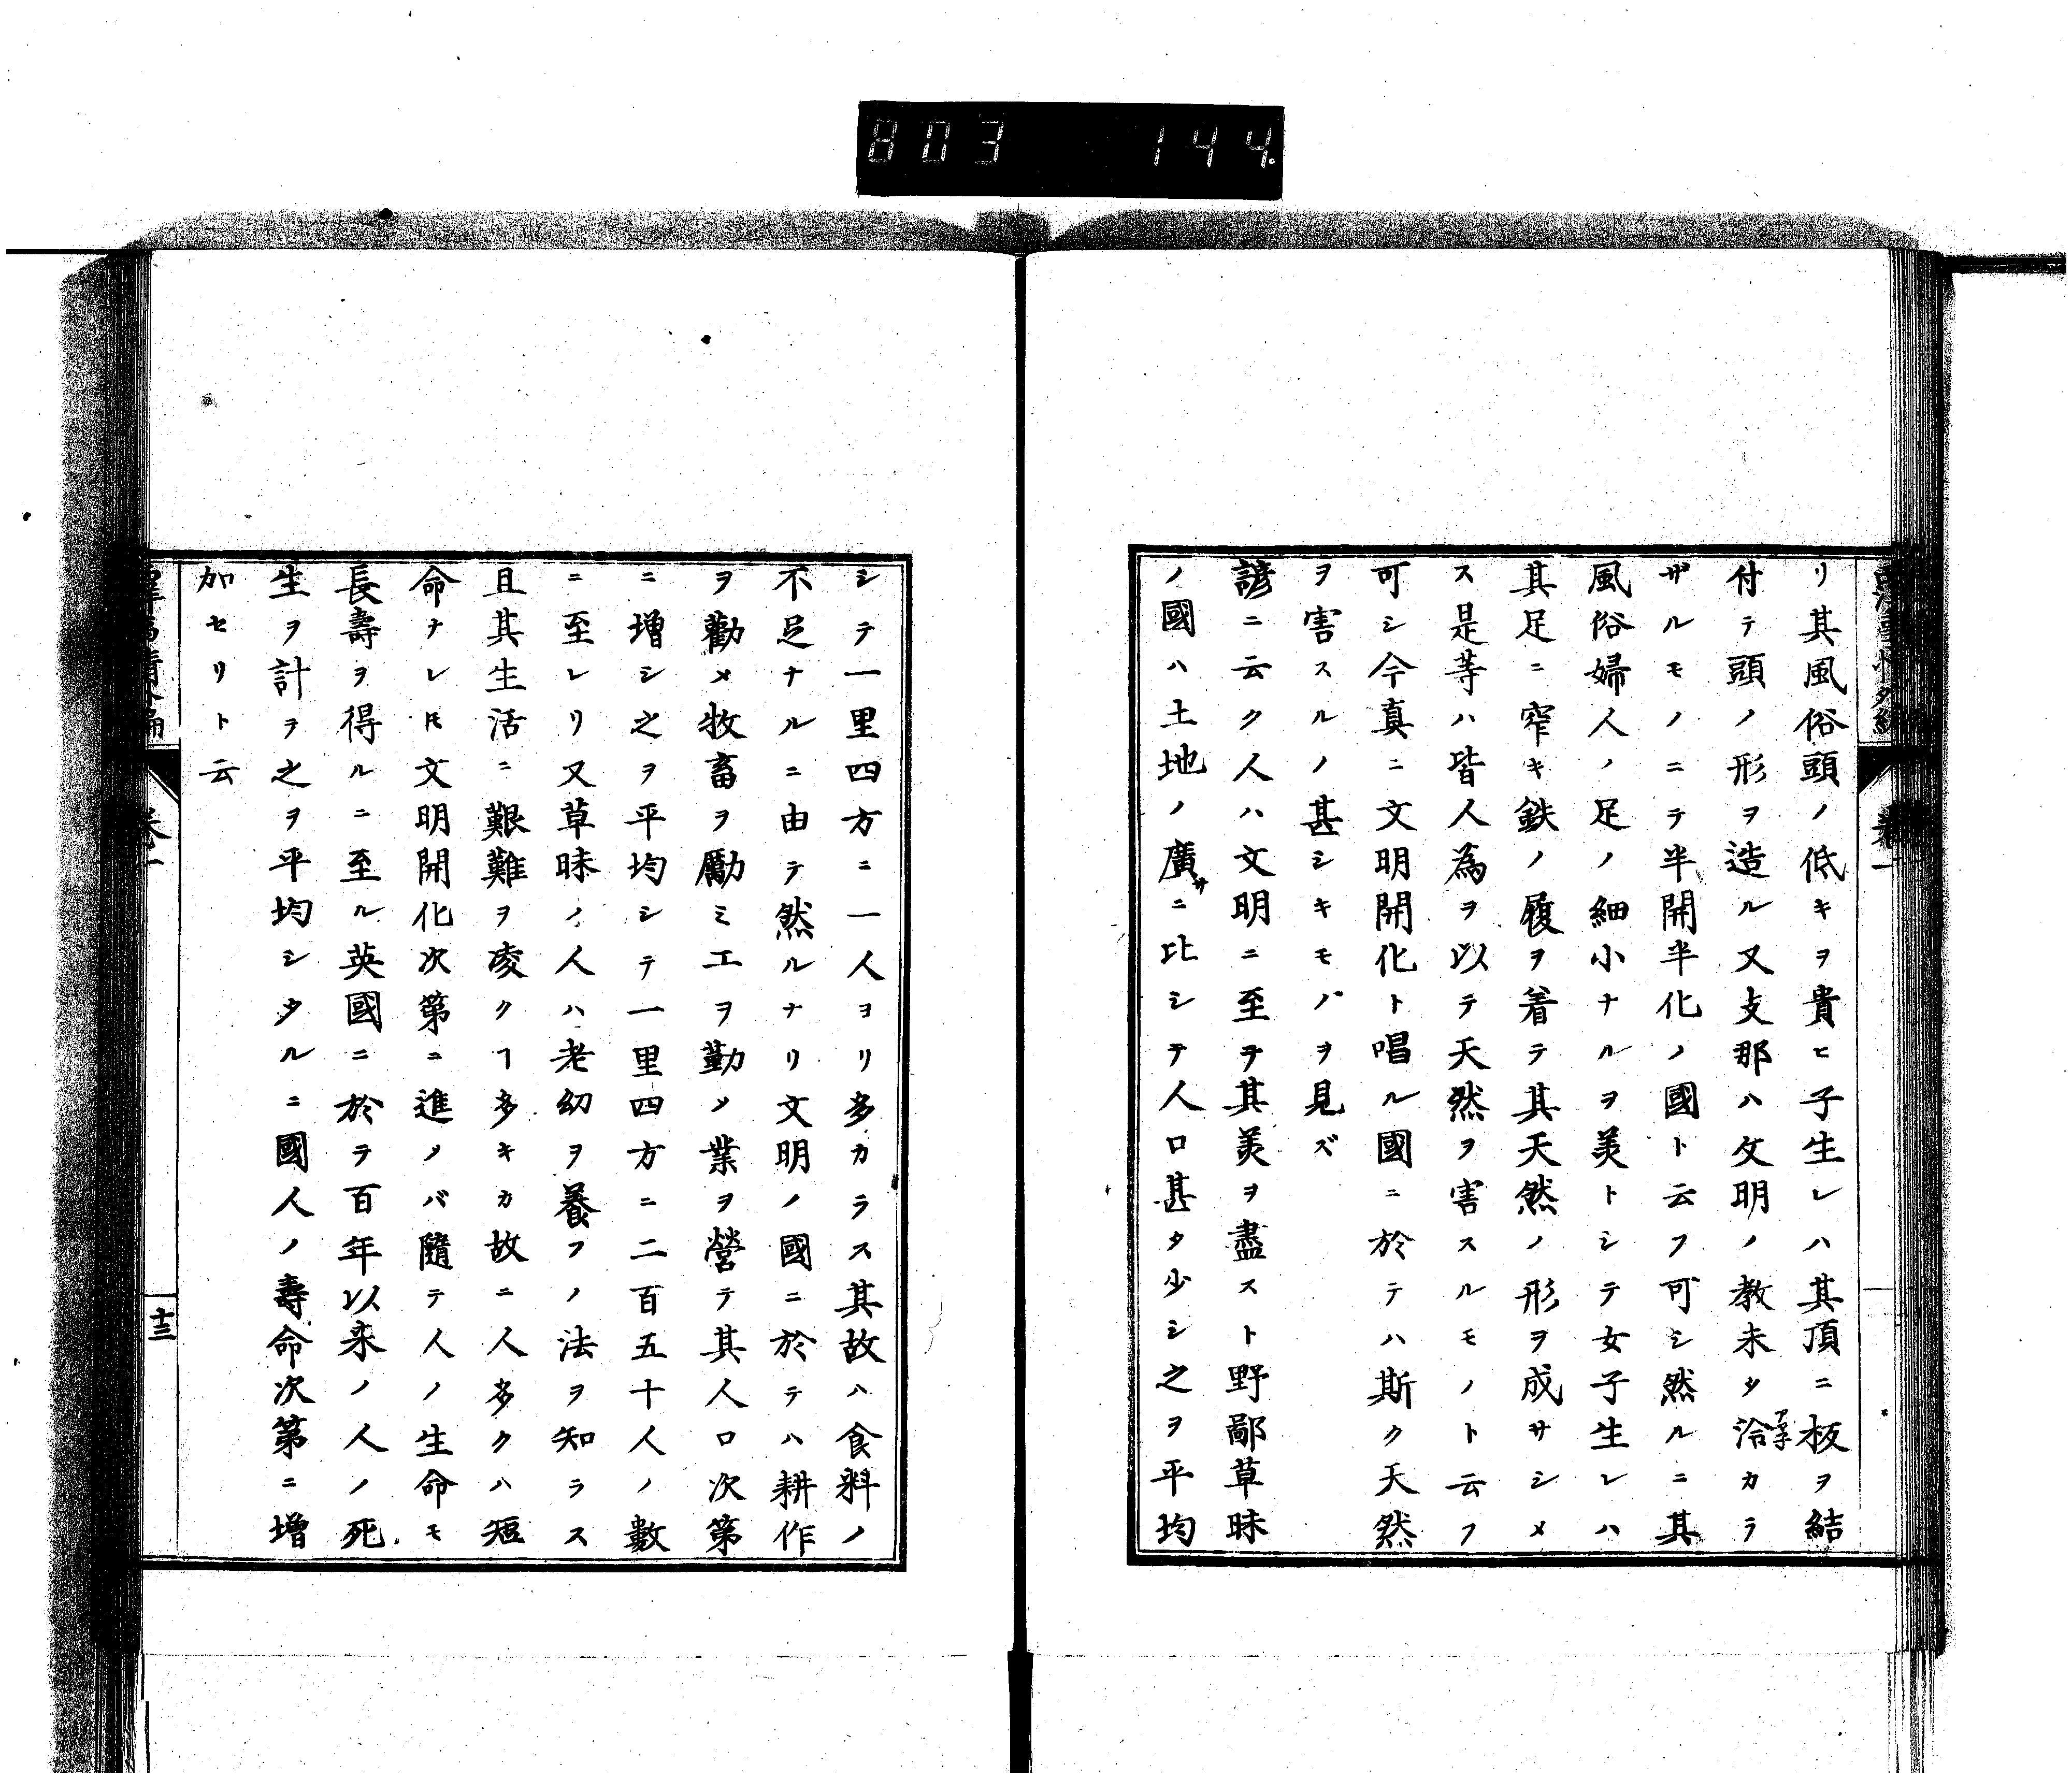 803 144.
リ其風俗頭ノ低キヲ貴ヒ子生レハ其頂ニ板ヲ結
付テ頭ノ形ヲ造ル又支那ハ文明ノ教未タ洽カラ
ザルモノニテ半開半化ノ國ト云フ可シ然ルニ其
風俗婦人ノ足ノ細小ナルヲ美トシテ女子生レハ
其足ニ窄キ鉄ノ履ヲ着テ其天然ノ形ヲ成サシメ
ス是等ハ皆人為ヲ以テ天然ヲ害スルモノト云フ
可シ今真ニ文明開化ト唱ル國ニ於テハ斯ク天然
ヲ害スルノ甚シキモノヲ見ズ
諺ニ云ク人ハ文明ニ至テ其美ヲ盡スト野鄙草昧
ノ國ハ土地ノ廣サニ比シテ人口甚タ少シ之ヲ平均
シテ一里四方ニ一人ヨリ多カラス其故ハ食料ノ
不足ナルニ由テ然ルナリ文明ノ國ニ於テハ耕作
ヲ勸メ牧畜ヲ勵ミ工ヲ勤メ業ヲ營テ其人口次第
ニ増シ之ヲ平均シテ一里四方ニ二百五十人ノ數
ニ至レリ又草昧ノ人ハ老幼ヲ養フノ法ヲ知ラス
且其生活ニ艱難ヲ凌クヿ多キカ故ニ人多クハ短
命ナレ𪜈文明開化次第ニ進メバ隨テ人ノ生命モ
長壽ヲ得ルニ至ル英國ニ於テ百年以来ノ人ノ死
生ヲ計テ之ヲ平均シタルニ國人ノ壽命次第ニ増
加セリト云
卷一
十三